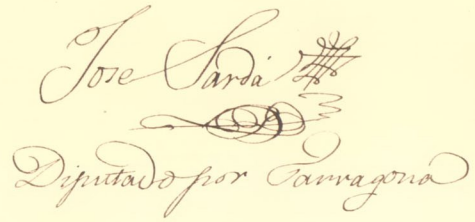 Jose Sardá
Diputado por Tarragona